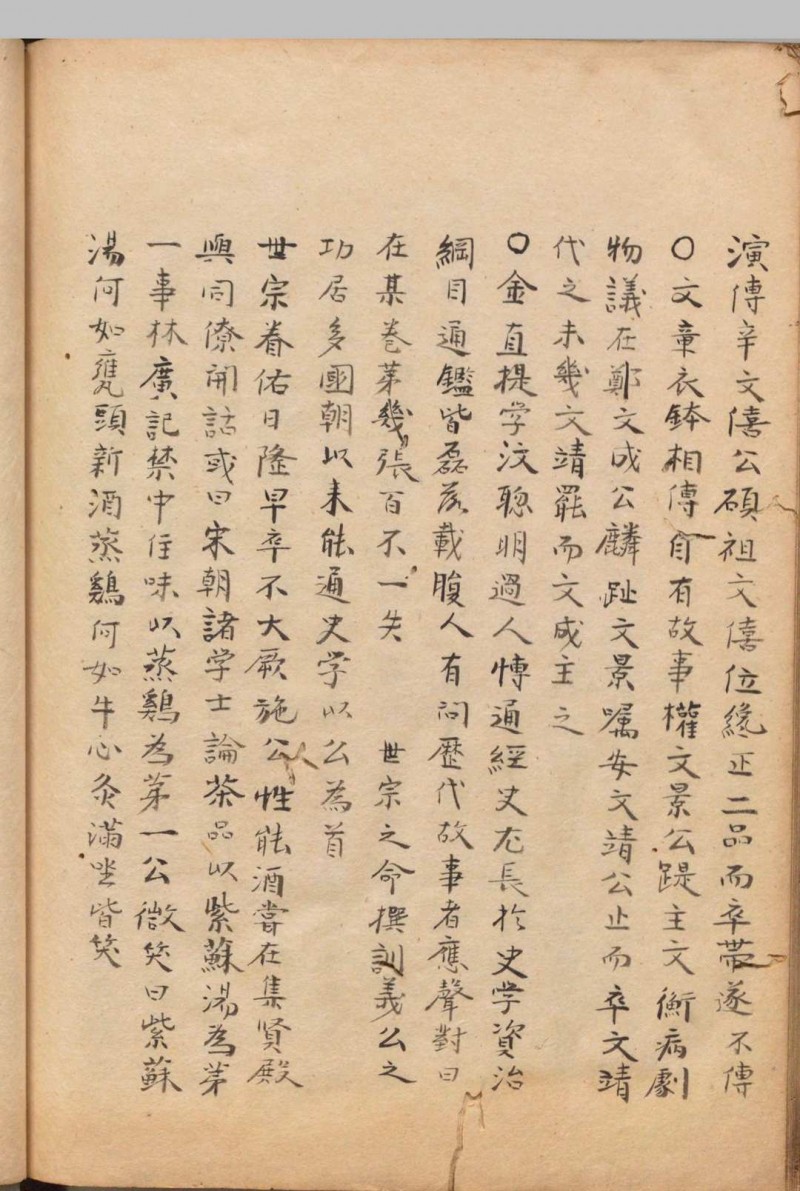 演傳辛文僖公碩祖文僖位纔正二品而卒帶遂不傳
〇文章衣鉢相傳自有故事權文景公踶主文衡病劇
物議在鄭文成公麟趾文景嘱安文靖公止而卒文靖
代之未幾文靖罷而文成主之
〇金直提学汶聦明過人愽通經史尤長於史学資治
綱目通鑑皆磊落載腹人有问歷代故事者應聲對曰
在某卷苐幾張百不一失 世宗之命撰訓義公之
功居多國朝以来能通史学以公為首
世宗眷佑日隆早卒不大厥施公性能酒嘗在集賢殿
與同僚開話或曰宋朝諸学士論茶品以紫蘇湯為苐
一事林廣記禁中佳味以蒸鷄為苐一公微笑曰紫蘇
湯何如甕頭新酒蒸鷄何如牛心灸滿坐皆笑